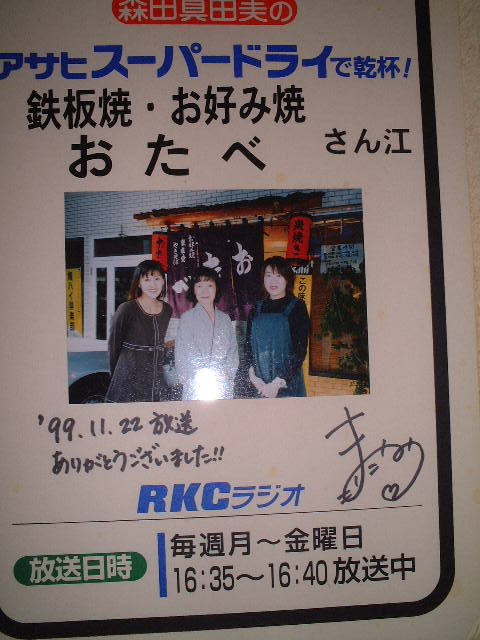 森田真由美の
アサヒスーパードライで乾杯!
鉄板焼・お好み焼
おたべ さん江
お好み焼
やきそば
おたべ
炭焼き
この味
'99.11.22 放送
ありがとうございました!!
RKCラジオ
放送日時
毎週月～金曜日
16:35～16:40 放送中